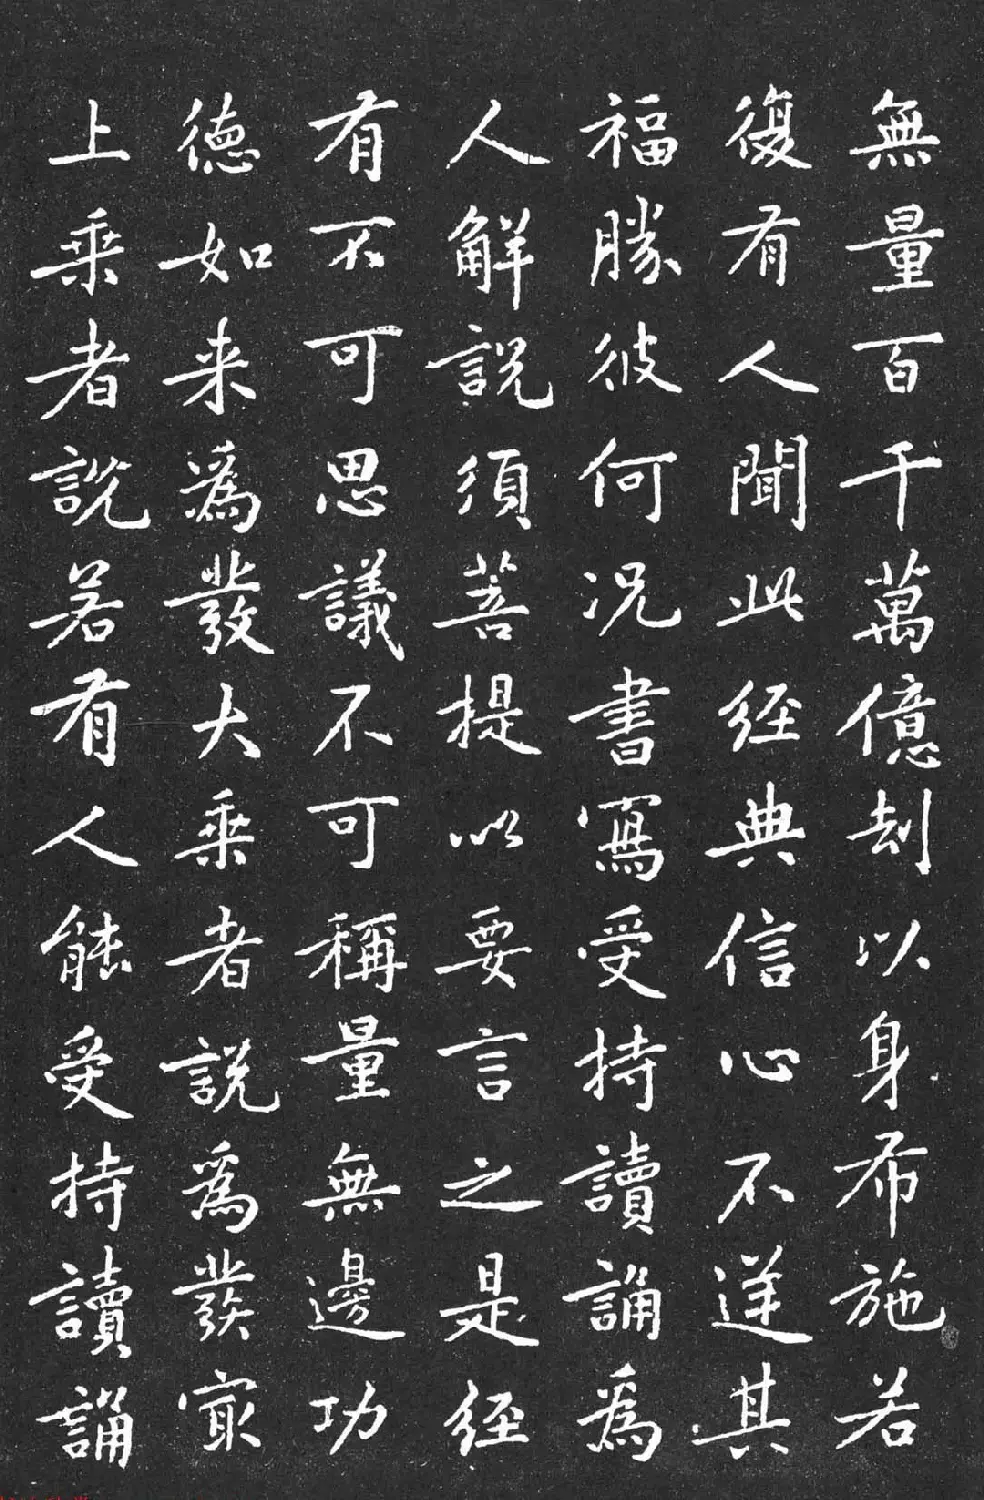 無量百千萬億刦以身布施若
復有人聞此経典信心不逆其
福勝彼何况書寫受持讀誦為
人解説須菩提以要言之是経
有不可思議不可稱量無邊功
德如来為發大乘者説為發冣
上乘者説若有人能受持讀誦